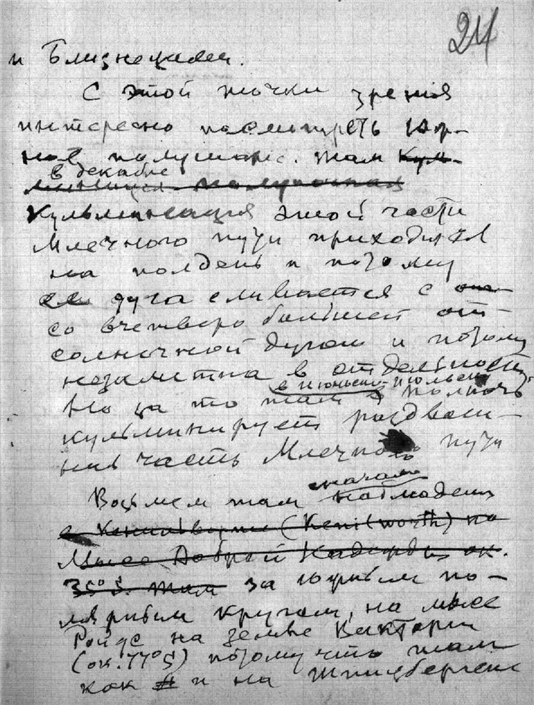 24
и Близнецами.
С этой точки зрения
интересно посмотреть Юж-
ное полушарие. Там куль-
в декабре
минация полуночная
Кульминация этой части
Млечного пути приходится
на полдень и потому
ее дуга сливается с
со вчетверо большей от
солнечной дугой и потому
незаметна в отдельности
в июньско-июльск
Но за то там в полночь
кульминирует раздвоен-
ная часть Млечного пути
Возьмем там наблюдения
(Kenilworth) на
Мысе Доброй Надежды ок.
35° S. Там за южным по-
лярным кругом, на мысе
Ройдс на земле Виктории
(ок. 77° S) потому что там
как и на Шпицбергене